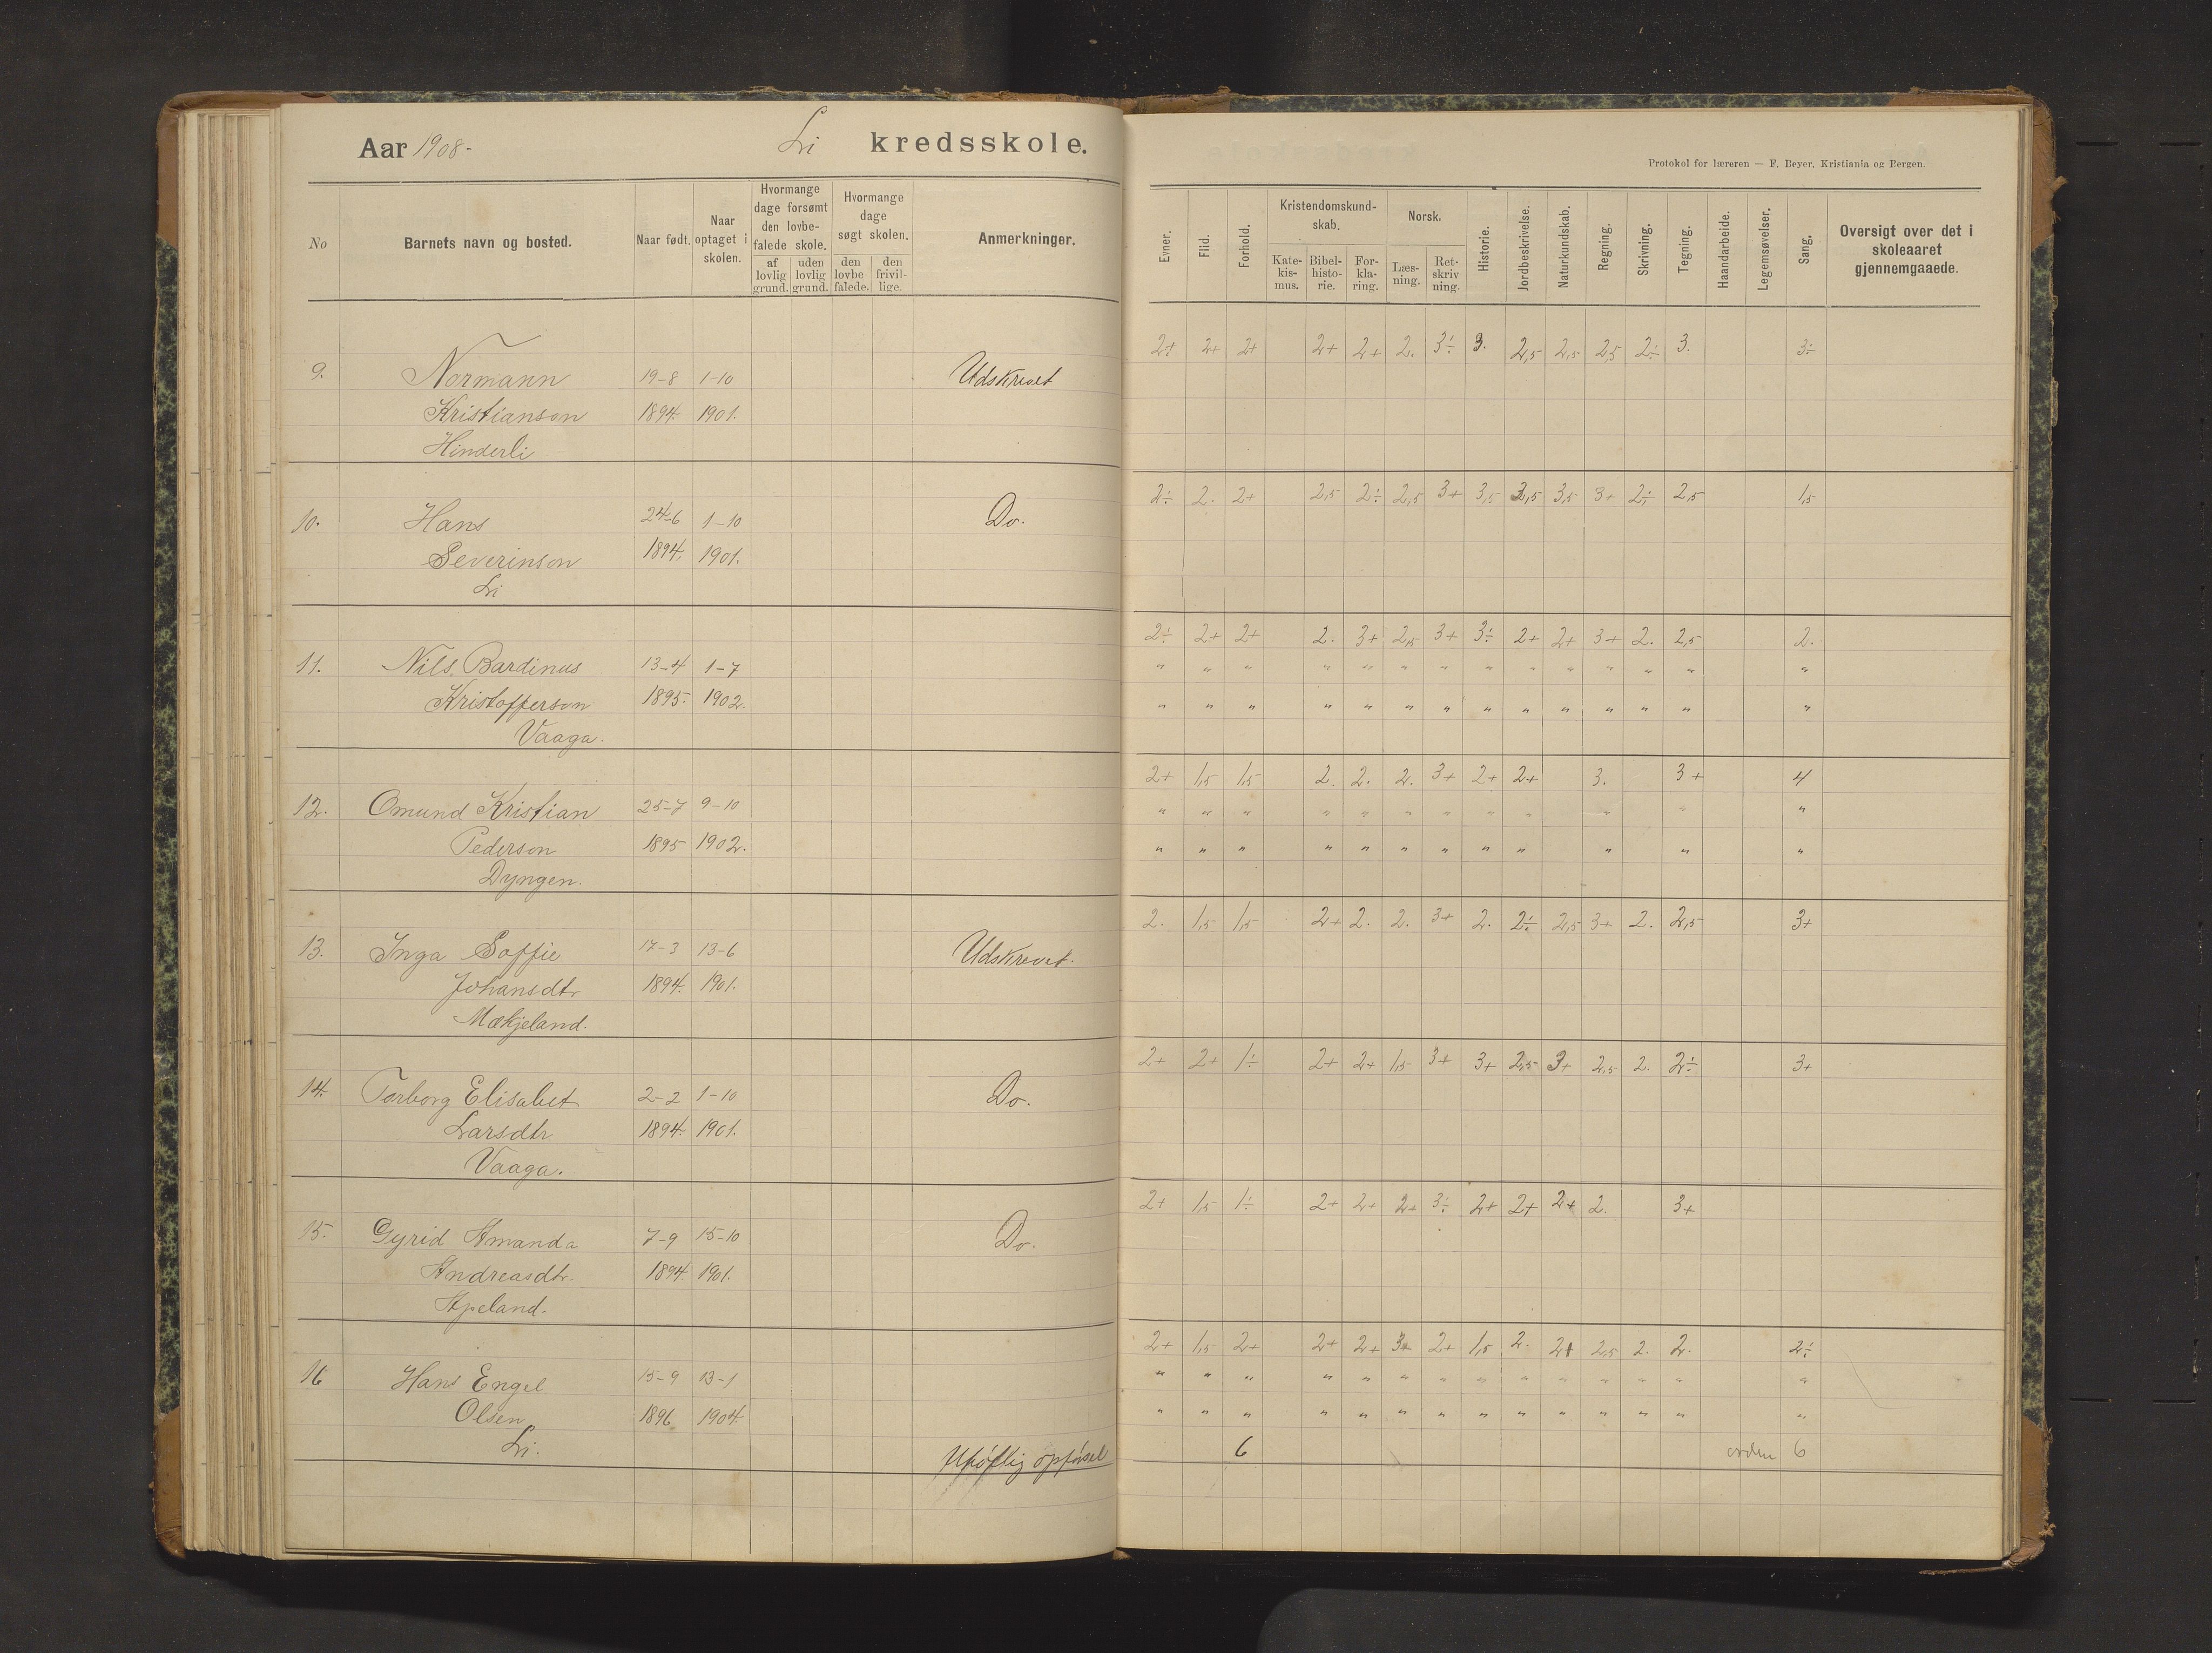 Aar 1908- Li kredsskole.
No
Barnets navn og bosted.
Naar født.
Naar optaget i skolen.
Hvormange dage forsømt den lovbefalede skole.
af lovlig grund.
uden lovlig grund.
Hvormange dage søgt skolen.
den lovbefalede.
den frivillige.
Anmerkninger.
9. Normann 19-8 1-10 Udskrevet
Kristianson 1894. 1901.
Hinderli
10. Hans 24-6 1-10 Do.
Severinson 1894. 1901.
Li
11. Nils Bardinus 13-4 1-7
Kristofferson 1895. 1902.
Vaaga.
12. Omund Kristian 25-7 9-10
Pederson 1895 1902.
Dyngen.
13. Inga Soffie 17-3 13-6 Udskrevet.
Johansdtr 1894. 1901.
Mækjeland.
14. Torborg Elisabet 2-2 1-10 Do.
Larsdtr 1894. 1901.
Vaaga.
15. Gyrid Amanda 7-9 15-10 Do.
Andreasdtr. 1894. 1901.
Apeland.
16 Hans Engel 15-9 13-1
Olsen 1896 1904.
Li. Uhøflig opførsel
Protokol for læreren — F. Beyer, Kristiania og Bergen.
Evner.
Flid.
Forhold.
Kristendomskundskab.
Katekismus.
Bibelhistorie.
Forklaring.
Norsk.
Læsning.
Retskrivning.
Historie.
Jordbeskrivelse.
Naturkundskab.
Regning.
Skrivning.
Tegning.
Haandarbeide.
Legemsøvelser.
Sang.
Oversigt over det i skoleaaret gjennemgaaede.
2+ 2+ 2+ 2+ 2+ 2. 3÷ 3. 2,5 2,5 2,5 2÷ 3. 3÷
2÷ 2. 2+ 2,5 2÷ 2,5 3+ 3,5 3,5 3,5 3+ 2÷ 2,5 1,5
2÷ 2+ 2+ 2. 3+ 2,5 3+ 3÷ 2+ 2+ 3+ 2. 2,5 2.
" " " " " " " " " " " " " "
" " " " " " " " " " " " " "
2+ 1,5 1,5 2. 2. 2. 3+ 2+ 2+ 3. 3+ 4
" " " " " " " " " " " "
" " " " " " " " " " " "
2. 1,5 1,5 2+ 2. 2. 3+ 2. 2÷ 2,5 3+ 2. 2,5 3+
2+ 2+ 1÷ 2+ 2+ 1,5 3+ 3+ 2,5 3+ 2,5 2. 2÷ 3+
2+ 1,5 1÷ 2+ 2+ 2+ 3÷ 2+ 2+ 2+ 2. 3+
2+ 1,5 2+ 2+ 2+ 3+ 2+ 1,5 2. 2+ 2,5 2. 2. 2÷
" " " " " " " " " " " " " "
" " " " " " " " " " " " " "
6 orden 6